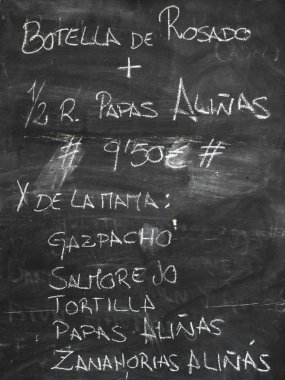 BOTELLA DE ROSADO
+
1/2 R. PAPAS ALIÑAS
# 9'50€ #
Y DE LA MAMA:
GAZPACHO
SALMOREJO
TORTILLA
PAPAS ALIÑAS
ZANAHORIAS ALIÑÁS